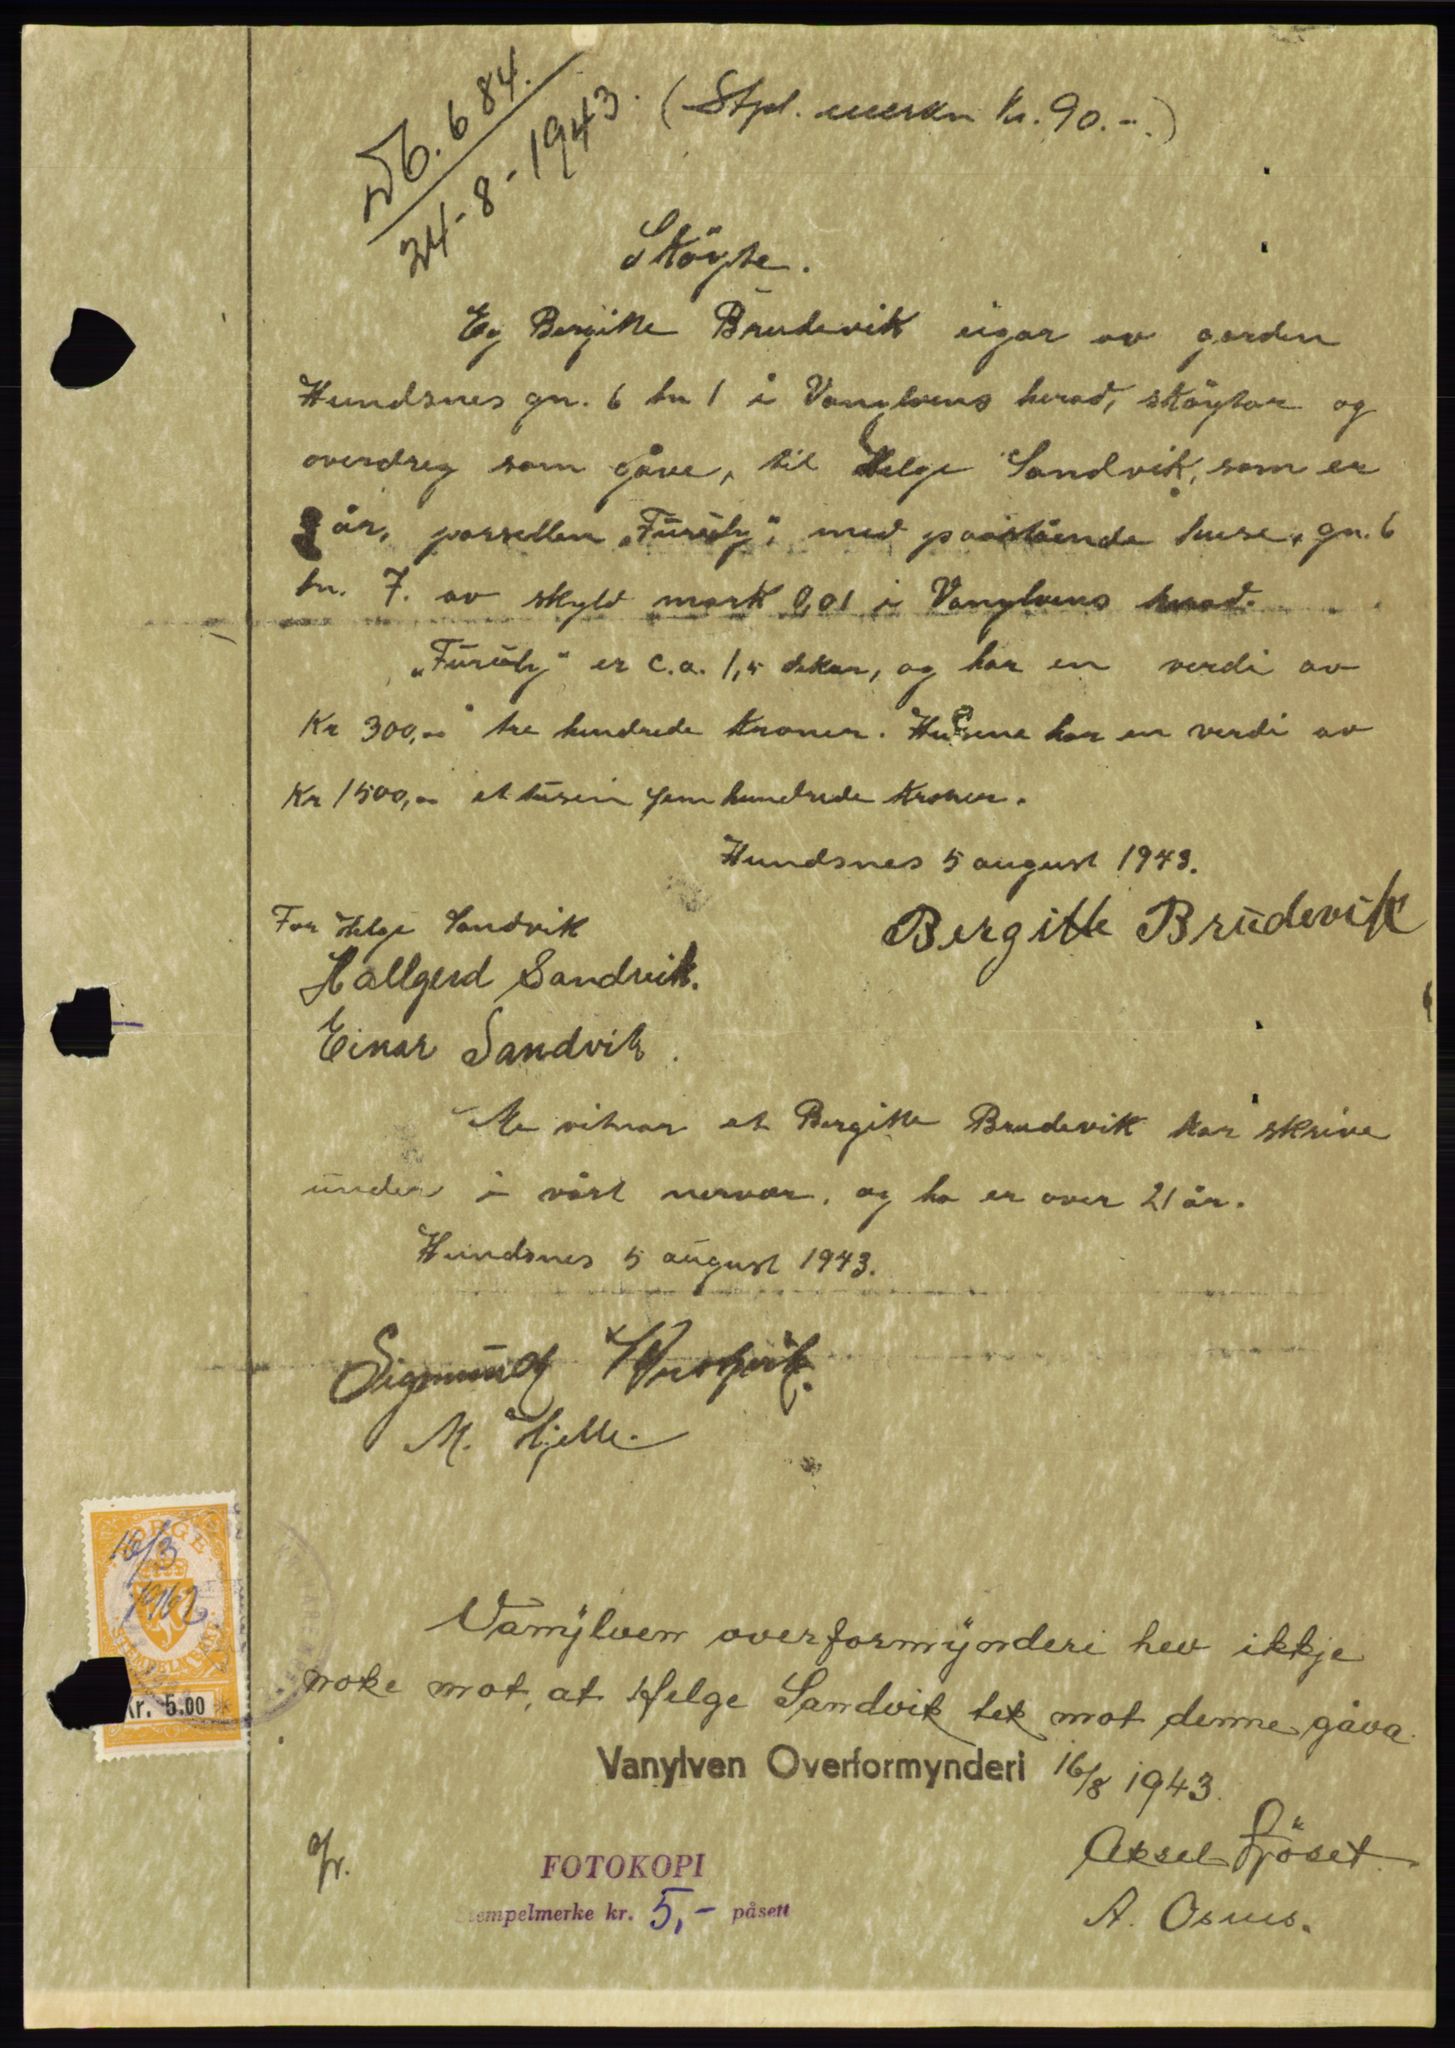 Db. 684.
24-8-1943.
(Stpl. merkn kr. 90.-.)
Sköyte.
Eg Bergitte Brudevik eigar av garden
Hundsnes gn. 6 bn 1 i Vanylvens herad, sköytar og
overdreg som gåve, til Helge Sandvik, som er
år, parsellen „Furuly", med påstående huse, gn. 6
bn. 7. av skyld mark 0,01 i Vanylvens herad.
„Furuly" er c.a. 1,5 dekar, og har en verdi av
Kr 300,00 tre hundrede kroner. Husene har en verdi av
Kr 1500,00 et tusen fem hundrede kroner.
Hundsnes 5 august 1943.
Bergitte Brudevik
For Helge Sandvik
Hallgerd Sandvik.
Einar Sandvik.
Me vitnar at Bergitte Brudevik har skrive
under i vårt nervær, og ho er over 21 år.
Hundsnes 5 august 1943.
Sigmund
M. Hjelle.
Vanylven overformynderi hev ikkje
noke mot, at Helge Sandvik tek mot denne gåva.
Vanylven Overformynderi 16/8 1943.
Aksel Fjöset.
A. Osnes.
NORGE
16/3
1962
STEMPELMERKE
Kr. 5.00
FOTOKOPI
Stempelmerke kr. 5,- påsett